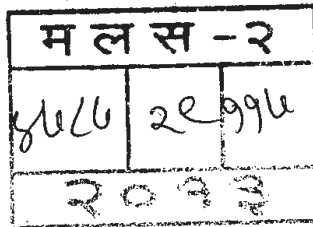 म ल स - २
४५८५ २९ ११५
२०१३